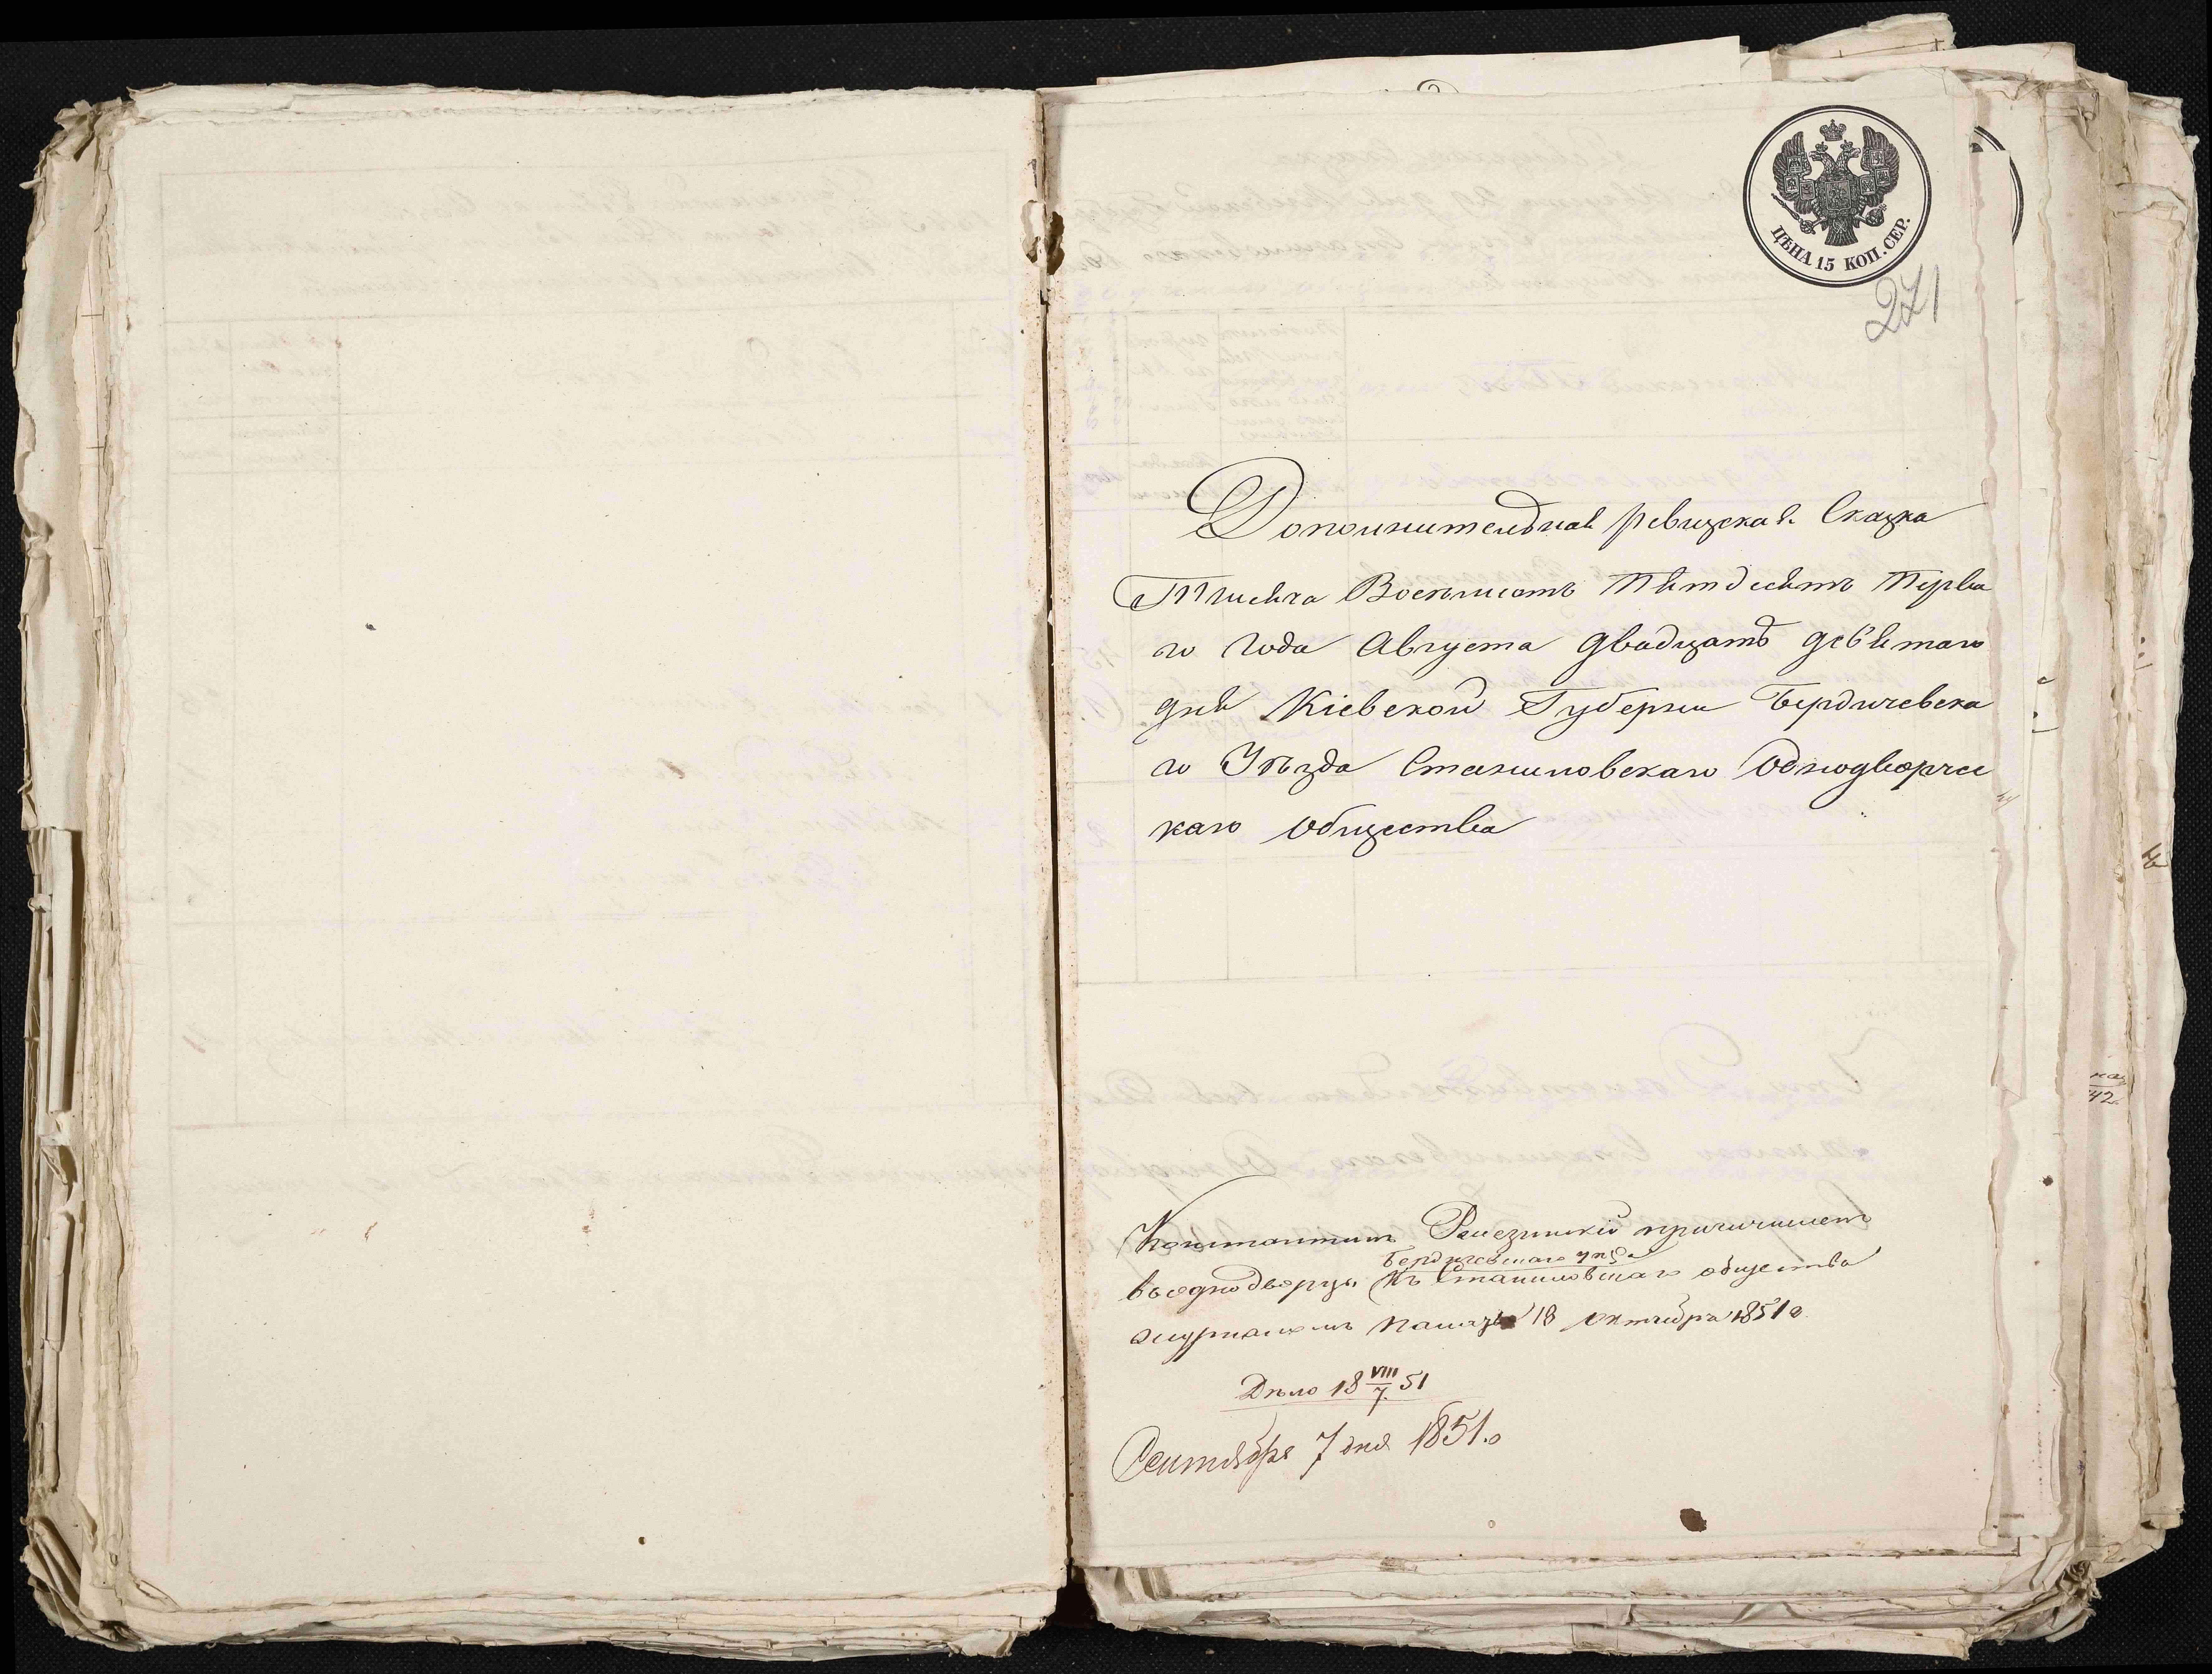 ЦѢНА 15 КОП. СЕР.
271
Дополнительная ревизская Сказка
Тысяча Восемьсотъ Пятдесятъ Перва
го года Августа двадцать девятаго
дня Кіевской Губерніи Бердичевска
го Уѣзда Станиловскаго Однодворчес
каго общества
Константинъ причисленъ
Бердичевскаго уѣз.
въ однодворцы къ Станиловскаго общества
журналомъ Палаты 18 октября 1851 г.
Дѣло 18 VIII/7 51
Сентября 7 дня 1851.